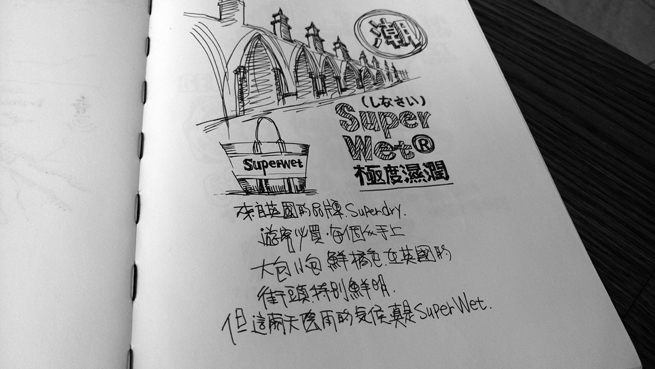 潮
(しなさい)
Super
Wet®
極度濕潤
Superwet
來自英國的品牌,Superdry.
遊客必買,每個人手上
大包小包 鮮橘色 在英國的
街頭特別鮮明.
但這兩天陰雨的氣候真是SuperWet.